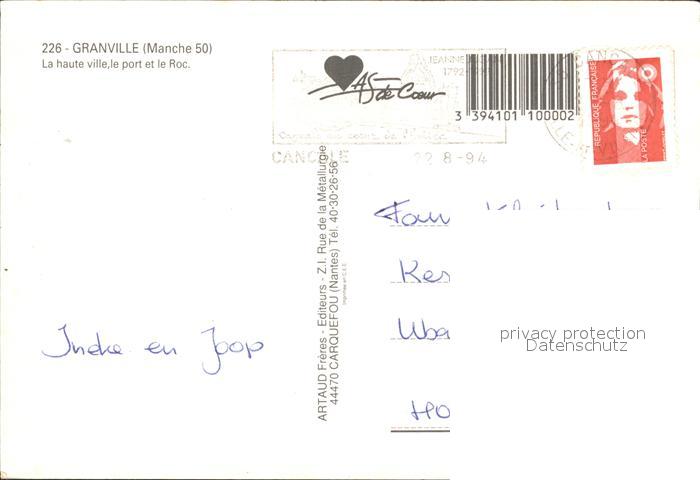 226 - GRANVILLE (Manche 50)
La haute ville,le port et le Roc.
As de Cœur
JEANNE
3 394101 100002
CANCALE 22 8-94
REPUBLIQUE FRANÇAISE
LA POSTE
ARTAUD Frères - Editeurs - Z.I. Rue de la Métallurgie
44470 CARQUEFOU (Nantes) Tél. 40·30·26·56
Imprimée en C.E.E.
Fam
Kes
Uba
HO
Ineke en Joop
privacy protection
Datenschutz